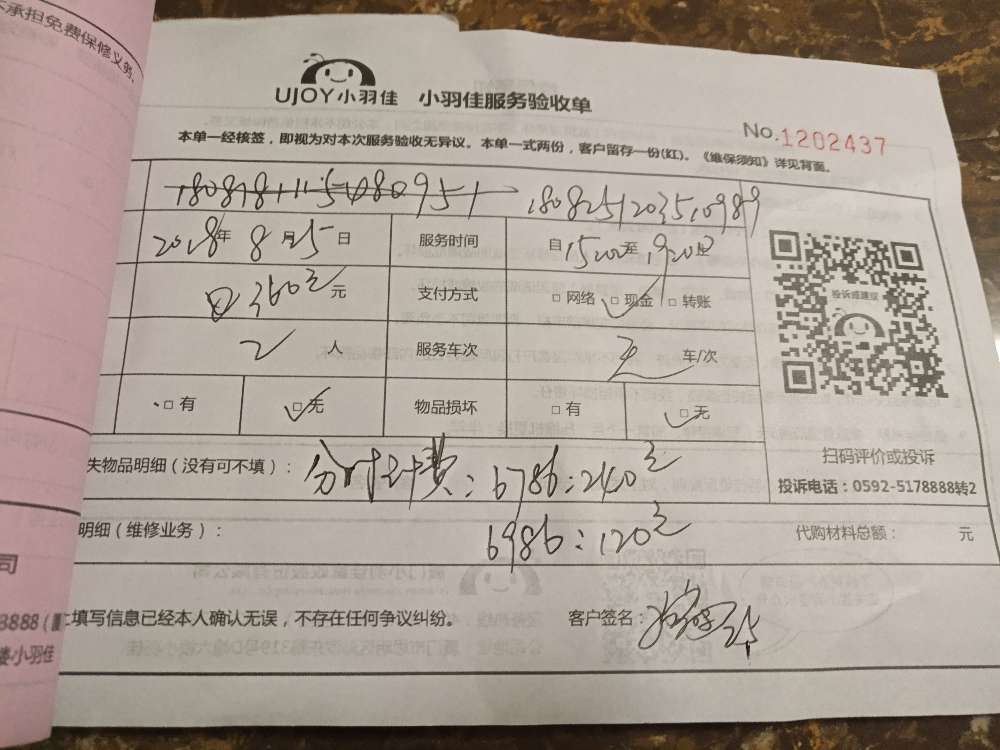 承担免费保修义务,
UJOY小羽佳 小羽佳服务验收单
No.1202437
本单一经核签，即视为对本次服务验收无异议。本单一式两份，客户留存一份(红)。《维保须知》详见背面。
1808251203510989
2018年 8月25日 服务时间 自1500至1920止
360元 元 支付方式 □ 网络 □ 现金 □ 转账
投诉或建议
2 人 服务车次 2 车/次
□ 有 □ 无 物品损坏 □ 有 □ 无
扫码评价或投诉
失物品明细（没有可不填）： 分时计费：6786：240元
投诉电话：0592-5178888转2
明细（维修业务）： 6986：120元 代购材料总额： 元
司
填写信息已经本人确认无误，不存在任何争议纠纷。 客户签名：
8888
楼小羽佳